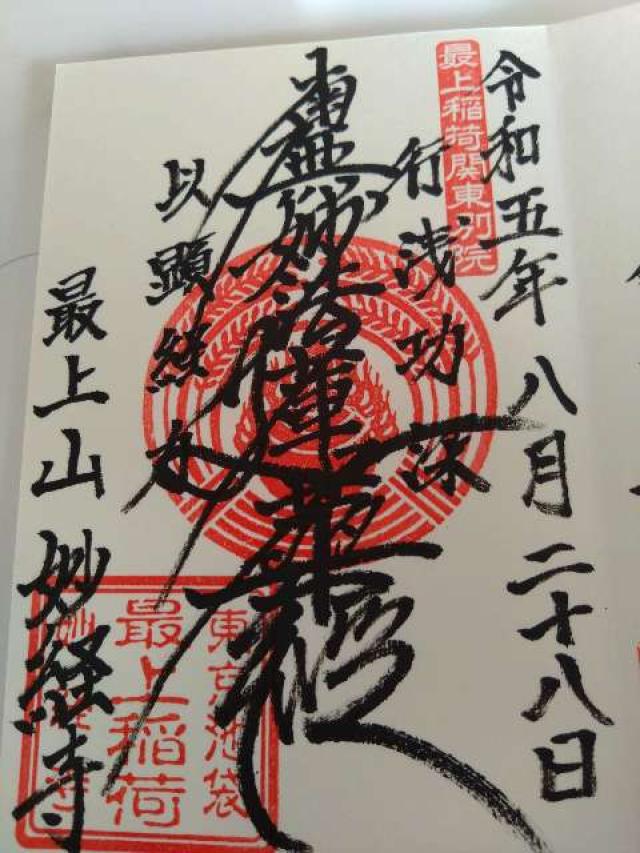 令和五年八月二十八日
最上稲荷関東別院
行浅功深
南無妙法蓮華経
以顕経力
最上山妙経寺
東京池袋
最上稲荷